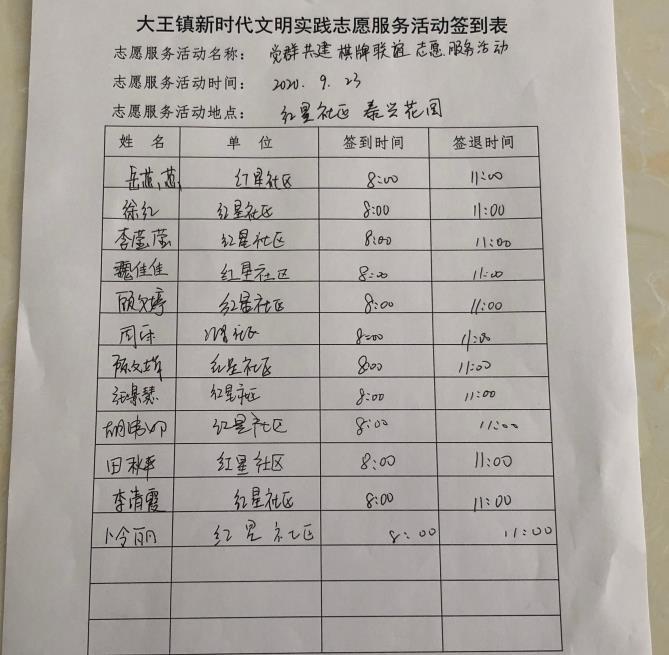 大王镇新时代文明实践志愿服务活动签到表
志愿服务活动名称： 党群共建 棋牌联谊 志愿服务活动
志愿服务活动时间： 2020. 9. 23
志愿服务活动地点： 红星社区 泰兴花园
姓 名 单 位 签到时间 签退时间
岳燕燕 红星社区 8:00 11:00
徐红 红星社区 8:00 11:00
李莹莹 红星社区 8:00 11:00
魏佳佳 红星社区 8:00 11:00
顾文婷 红星社区 8:00 11:00
周乐 红星社区 8:00 11:00
陈文娟 红星社区 8:00 11:00
红星社区 8:00 11:00
红星社区 8:00 11:00
田秋苹 红星社区 8:00 11:00
李清霞 红星社区 8:00 11:00
卜令丽 红星社区 8:00 11:00